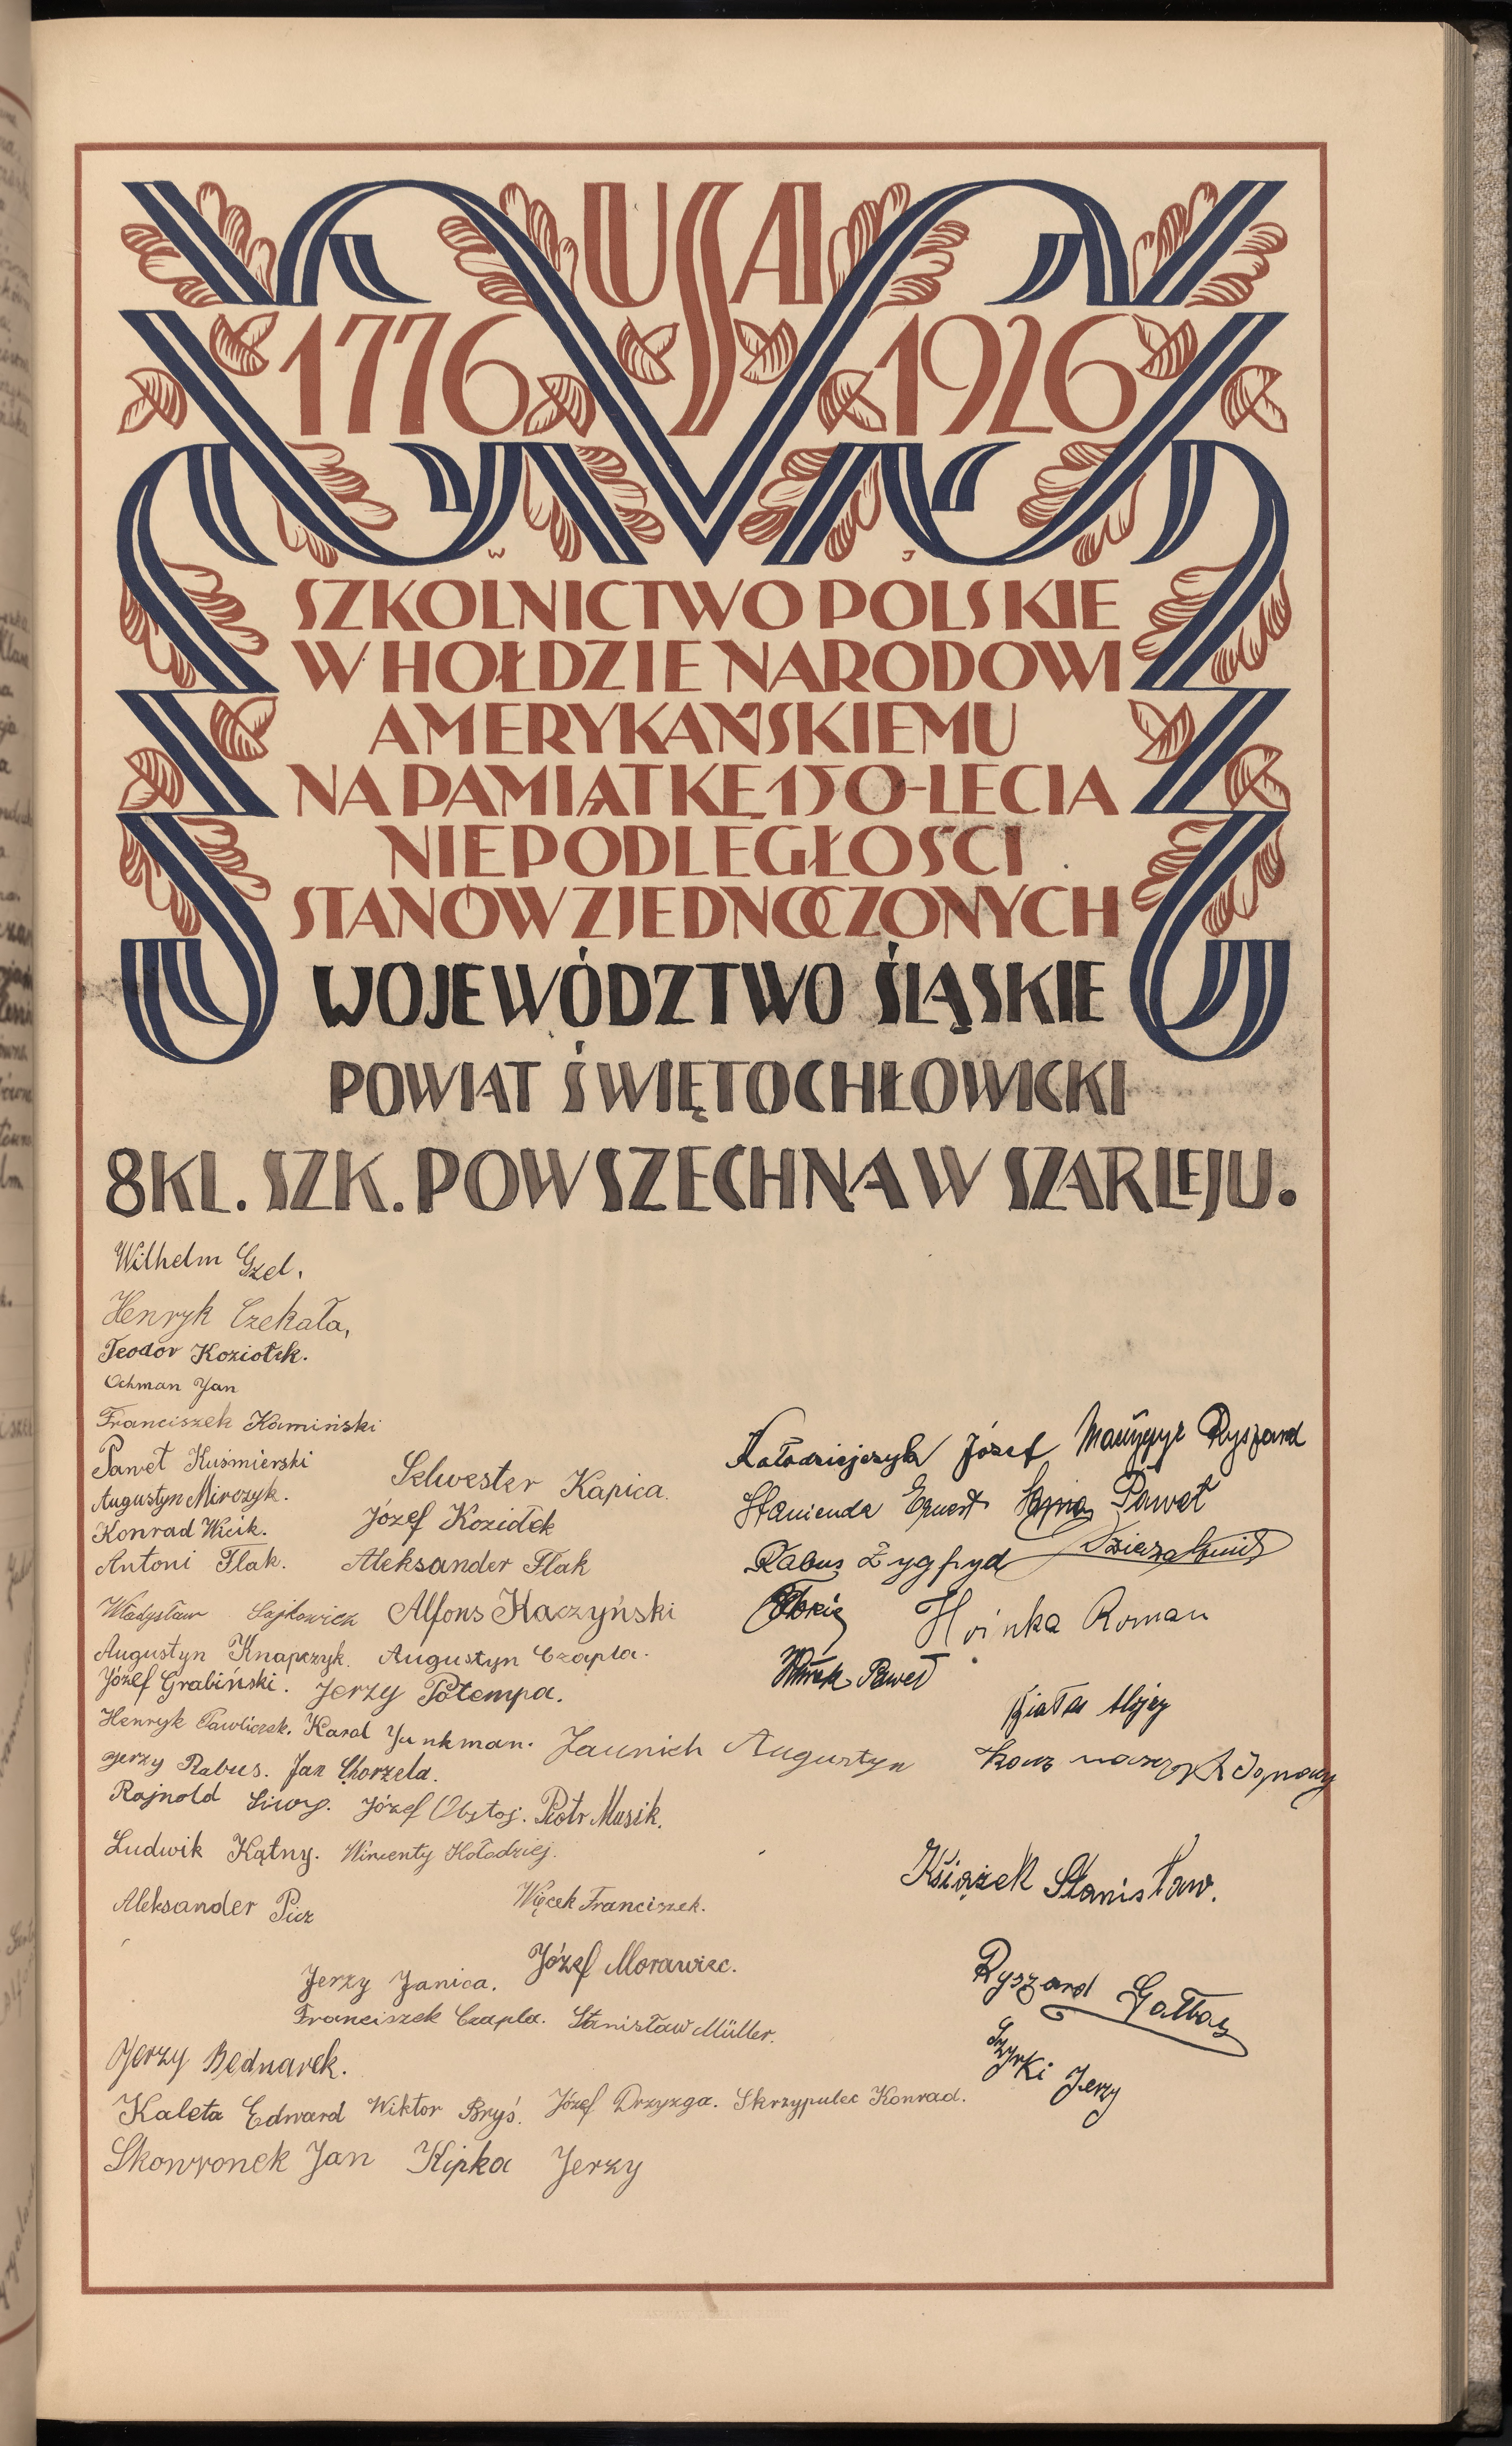 USA
1776 1926
W J
SZKOLNICTWO POLSKIE
W HOŁDZIE NARODOWI
AMERYKAŃSKIEMU
NA PAMIĄTKĘ 150-LECIA
NIEPODLEGŁOŚCI
STANÓW ZJEDNOCZONYCH
WOJEWÓDZTWO ŚLĄSKIE
POWIAT ŚWIĘTOCHŁOWICKI
8 KL. SZK. POWSZECHNA W SZARLEJU.
Wilhelm Gzel.
Henryk Czekała,
Teodor Koziołek.
Ochman Jan
Franciszek Kamiński
Paweł Kuśmierski
Augustyn Mirczyk.
Konrad Wicik.
Antoni Flak.
Selwester Kapica.
Józef Koziołek
Aleksander Flak
Władysław Sajkowicz Alfons Kaczyński
Augustyn Knapczyk. Augustyn Czapla.
Józef Grabiński. Jerzy Potempa.
Henryk Pawliczek. Karol Junkman.
Jerzy Rabus. Jan Chorzela.
Rajnold Siwy. Józef Obstoj. Piotr Musik.
Ludwik Kątny. Wincenty Kołodziej.
Aleksander Picz
Więcek Franciszek.
Józef Morawiec.
Jerzy Janica.
Franciszek Czapla. Stanisław Müller.
Jerzy Bednarek.
Kaleta Edward Wiktor Bryś. Józef Drzyzga. Skrzypulec Konrad.
Skowronek Jan Kipka Jerzy
Kołodziejczyk Józef Ryszard
Stanienda Ernest Paweł
Rabus Zygfryd
Hoinka Roman
Paweł
Jaunich Augustyn
Książek Stanisław.
Ryszard Gałbas
Szyrki Jerzy